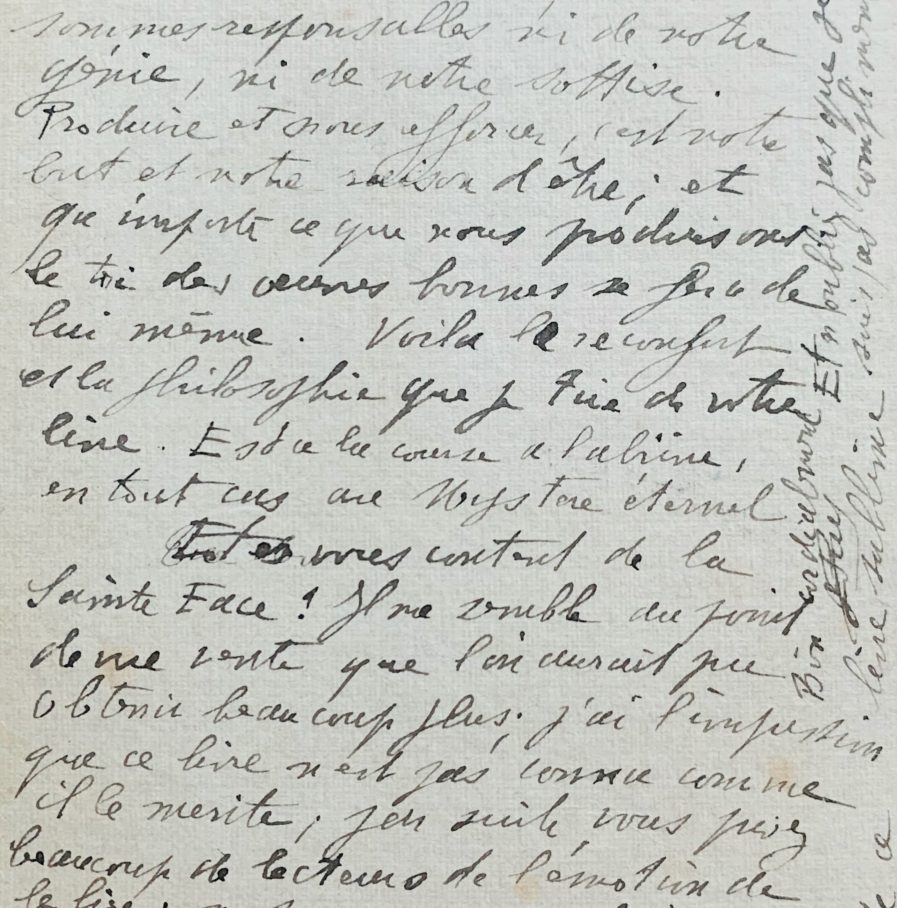 sommes responsables ni de notre
génie, ni de notre sottise.
Produire et nous efforcer, c'est notre
but et notre raison d'être; et
qu'importe ce que nous produisons
le tri des œuvres bonnes se fera de
lui même. Voila le reconfort
et la philosophie que je tire de votre
livre. Est ce la course a l'abîme,
en tout cas un Mystere éternel
Etes vous content de la
Sainte Face? Il me semble au point
de vue vente que l'on aurait pu
obtenir beaucoup plus; j'ai l'impression
que ce livre n'est pas connu comme
il le merite; j'en suis, vous privez
beaucoup de lecteurs de l'émotion de
le lire
Bien cordialement Et n'oubliez pas que je
suis pas compliment
livre sublime
ce